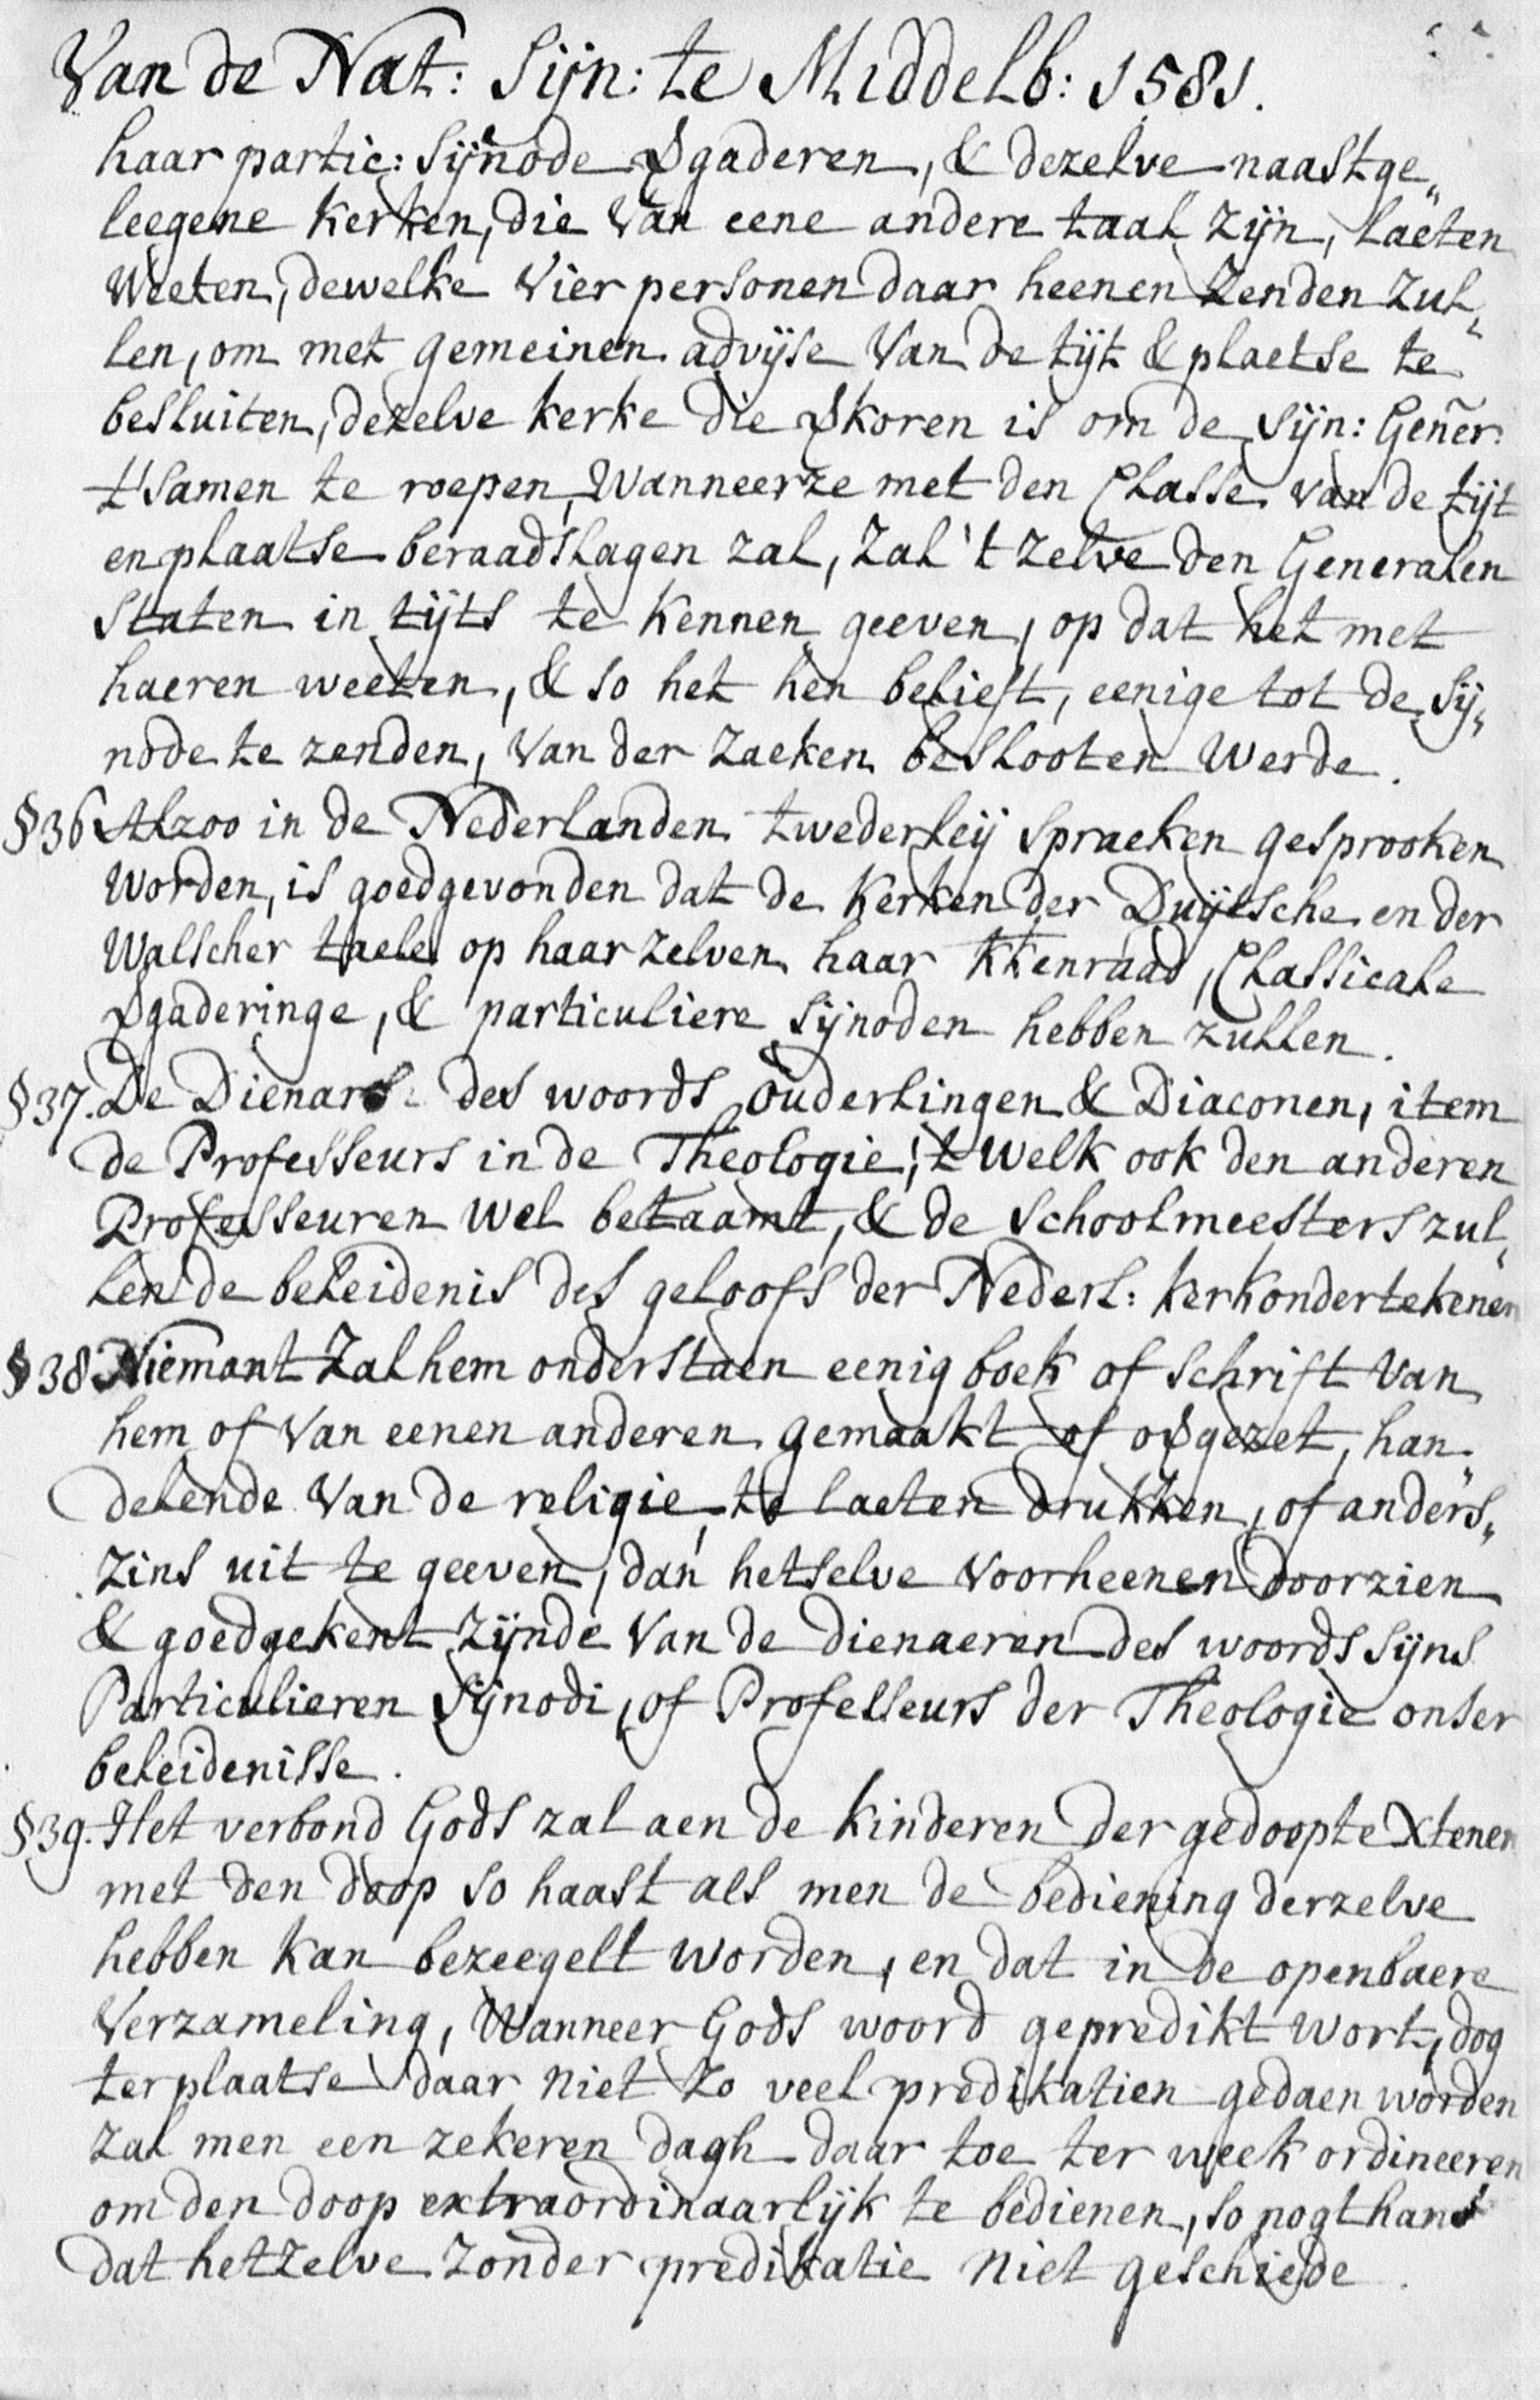 Van de Nat: Sijn: te Middelb: 1581.
haar partic: Sijnode Vgaderen, & dezelve naastge„
leegene kerken, die van eene andere taal zijn, laeten
Weeten, dewelke vier personen daar heenen zenden zul„
len, om met gemeinen advijse van de tijt & plaetse te
besluiten, dezelve kerke die Vkoren is om de Sijn: Gener:
t'samen te roepen, Wanneerze met den Classe van de tijt
en plaatse beraadslagen zal, zal 't zelve den Generalen
Staten in tijts te kennen geeven, op dat het met
haeren weeten, & so het hen belieft, eenige tot de Sij„
node te zenden, van der zaeken beslooten werde.
§36 Alzoo in de Nederlanden twederleij spraeken gesprooken
worden, is goedgevonden dat de kerken der Duijtsche en der
Walscher taele op haar zelven haar kkenraad, Classicale
Vgaderinge, & particuliere Sijnoden hebben zullen.
§37. De Dienars des woords ouderlingen & Diaconen, item
de Professeurs in de Theologie, 't welk ook den anderen
Professeuren wel betaamt, & de schoolmeesters zul„
len de beleidenis des geloofs der Nederl: kerk ondertekenen
§38 Niemant zal hem onderstaen eenig boek of schrift van
hem of van eenen anderen gemaakt of oVgezet, han„
delende van de religie, te laeten drukken, of anders„
zins uit te geeven, dan hetselve voorheenen doorzien
& goedgekent zijnde van de dienaeren des woords sijns
Particulieren Sijnodi, of Professeurs der Theologie onser
beleidenisse.
§39. Het verbond Gods zal aen de kinderen der gedoopte Xtenen
met den doop so haast als men de bediening derzelve
hebben kan bezeegelt worden, en dat in de openbaere
Verzameling, Wanneer Gods woord gepredikt wort, dog
ter plaatse daar niet zo veel predikatien gedaen worden
zal men een zekeren dagh daar toe ter week ordineeren
om den doop extraordinaarlijk te bedienen, so nogthans
dat hetzelve zonder predikatie niet geschiede.